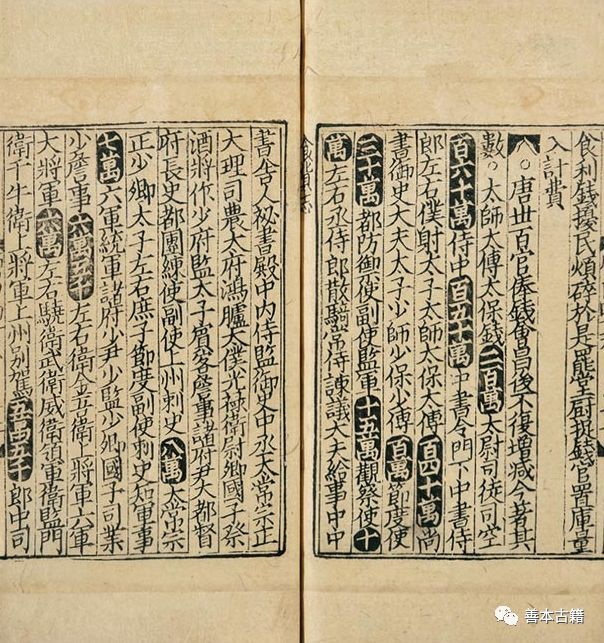 食利錢擾民煩碎於是罷堂厨捉錢官置庫量
入計費
〇唐丗百官俸錢會昌後不復增减今著其
數。太師太傅太保錢二百萬太尉司徒司空
百六十萬侍中百五十萬中書令門下中書侍
郎左右僕射太子太師太保太傅百四十萬尚
書御史大夫太子少師少保少傅百萬節度使
三十萬都防禦使副使監軍十五萬觀察使十
萬左右丞侍郎散騎常侍諫議大夫給事中中
書舍人祕書殿中内侍監御史中丞太常宗正
大理司農太府鴻臚太僕光禄衛尉卿國子祭
酒將作少府監太子賔客詹事諸府尹大都督
府長史都團練使副使上州刺史八萬太常宗
正少卿太子左右庶子節度副使刺史知軍事
七萬六軍統軍諸府少尹少監少卿國子司業
少詹事六萬五千左右衛金吾衛上將軍六軍
大將軍六萬左右驍衛武衛威衛領軍衛監門
衛千牛衛上將軍上州别駕五萬五千郎中司
善本古籍